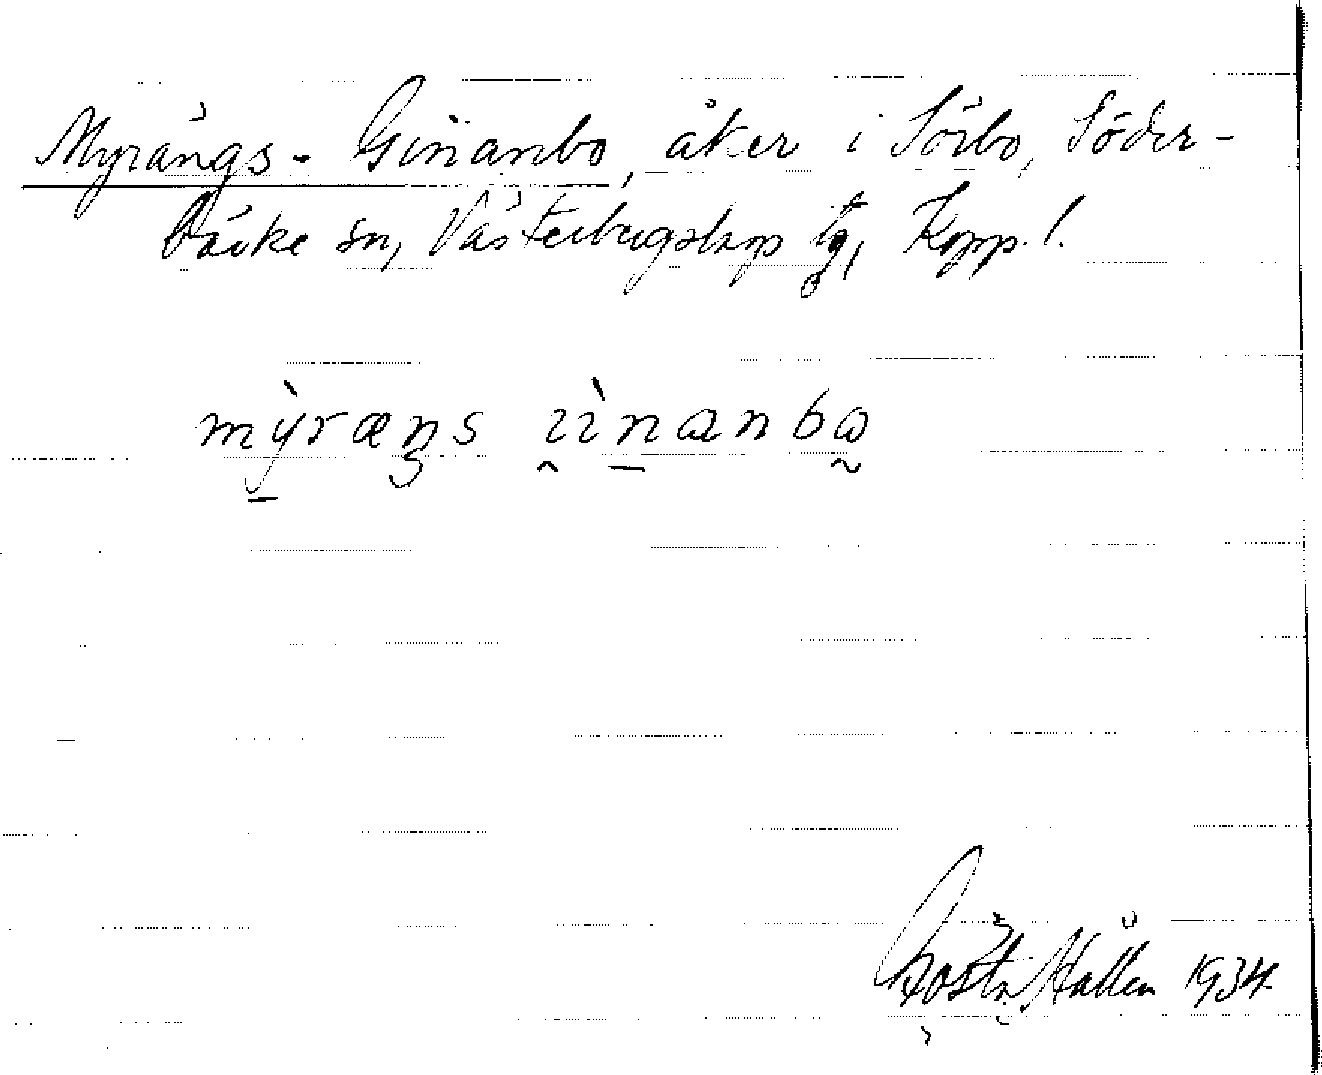 Myrängs-Ginanbo, åker i Sörbo, Söder-
bärke sn, Västerbergslags tg, Kopp. l.
mỳræŋs ɪìnanbω
Gösta Hallén 1934.